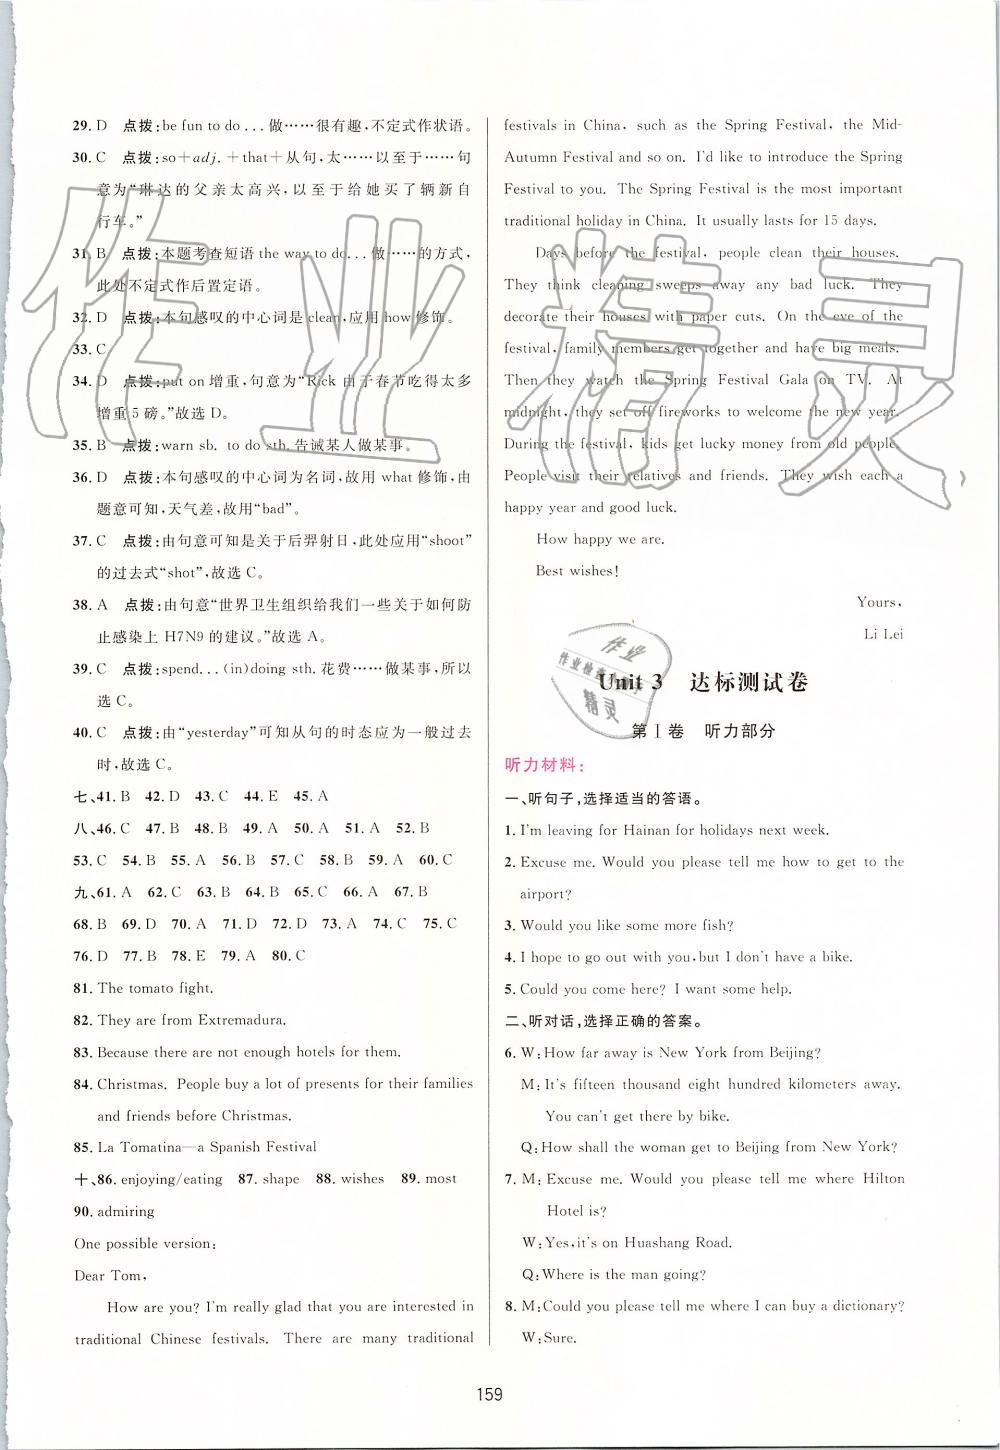 29. D　点拨:be fun to do ... 做……很有趣,不定式作状语。
30. C　点拨:so+adj. +that+从句,太……以至于……句
意为“琳达的父亲太高兴,以至于给她买了辆新自
行车。”
31. B　点拨:本题考查短语 the way to do... 做……的方式,
此处不定式作后置定语。
32. D　点拨:本句感叹的中心词是 clean,应用 how 修饰。
33. C
34. D　点拨:put on 增重,句意为“Rick 由于春节吃得太多
增重 5 磅。”故选 D。
35. B　点拨:warn sb. to do sth. 告诫某人做某事。
36. D　点拨:本句感叹的中心词为名词,故用 what 修饰,由
题意可知,天气差,故用“bad”。
37. C　点拨:由句意可知是关于后羿射日,此处应用“shoot”
的过去式“shot”,故选 C。
38. A　点拨:由句意“世界卫生组织给我们一些关于如何防
止感染上 H7N9 的建议。”故选 A。
39. C　点拨:spend...(in)doing sth. 花费……做某事,所以
选 C。
40. C　点拨:由“yesterday”可知从句的时态应为一般过去
时,故选 C。
七、41. B　42. D　43. C　44. E　45. A
八、46. C　47. B　48. B　49. A　50. A　51. A　52. B
53. C　54. B　55. A　56. B　57. C　58. B　59. A　60. C
九、61. A　62. C　63. B　64. B　65. C　66. A　67. B
68. B　69. D　70. A　71. D　72. D　73. A　74. C　75. C
76. D　77. B　78. E　79. A　80. C
81. The tomato fight.
82. They are from Extremadura.
83. Because there are not enough hotels for them.
84. Christmas. People buy a lot of presents for their families
and friends before Christmas.
85. La Tomatina—a Spanish Festival
十、86. enjoying/eating　87. shape　88. wishes　89. most
90. admiring
One possible version:
Dear Tom,
How are you? I'm really glad that you are interested in
traditional Chinese festivals. There are many traditional
festivals in China, such as the Spring Festival, the Mid-
Autumn Festival and so on. I'd like to introduce the Spring
Festival to you. The Spring Festival is the most important
traditional holiday in China. It usually lasts for 15 days.
Days before the festival, people clean their houses.
They think cleaning sweeps away any bad luck. They
decorate their houses with paper cuts. On the eve of the
festival, family members get together and have big meals.
Then they watch the Spring Festival Gala on TV. At
midnight, they set off fireworks to welcome the new year.
During the festival, kids get lucky money from old people.
People visit their relatives and friends. They wish each a
happy year and good luck.
How happy we are.
Best wishes!
Yours,
Li Lei
Unit 3　达标测试卷
第Ⅰ卷　听力部分
听力材料:
一、听句子,选择适当的答语。
1. I'm leaving for Hainan for holidays next week.
2. Excuse me. Would you please tell me how to get to the
airport?
3. Would you like some more fish?
4. I hope to go out with you,but I don't have a bike.
5. Could you come here? I want some help.
二、听对话,选择正确的答案。
6. W:How far away is New York from Beijing?
M:It's fifteen thousand eight hundred kilometers away.
You can't get there by bike.
Q:How shall the woman get to Beijing from New York?
7. M:Excuse me. Would you please tell me where Hilton
Hotel is?
W:Yes,it's on Huashang Road.
Q:Where is the man going?
8. M:Could you please tell me where I can buy a dictionary?
W:Sure.
159
作业精灵